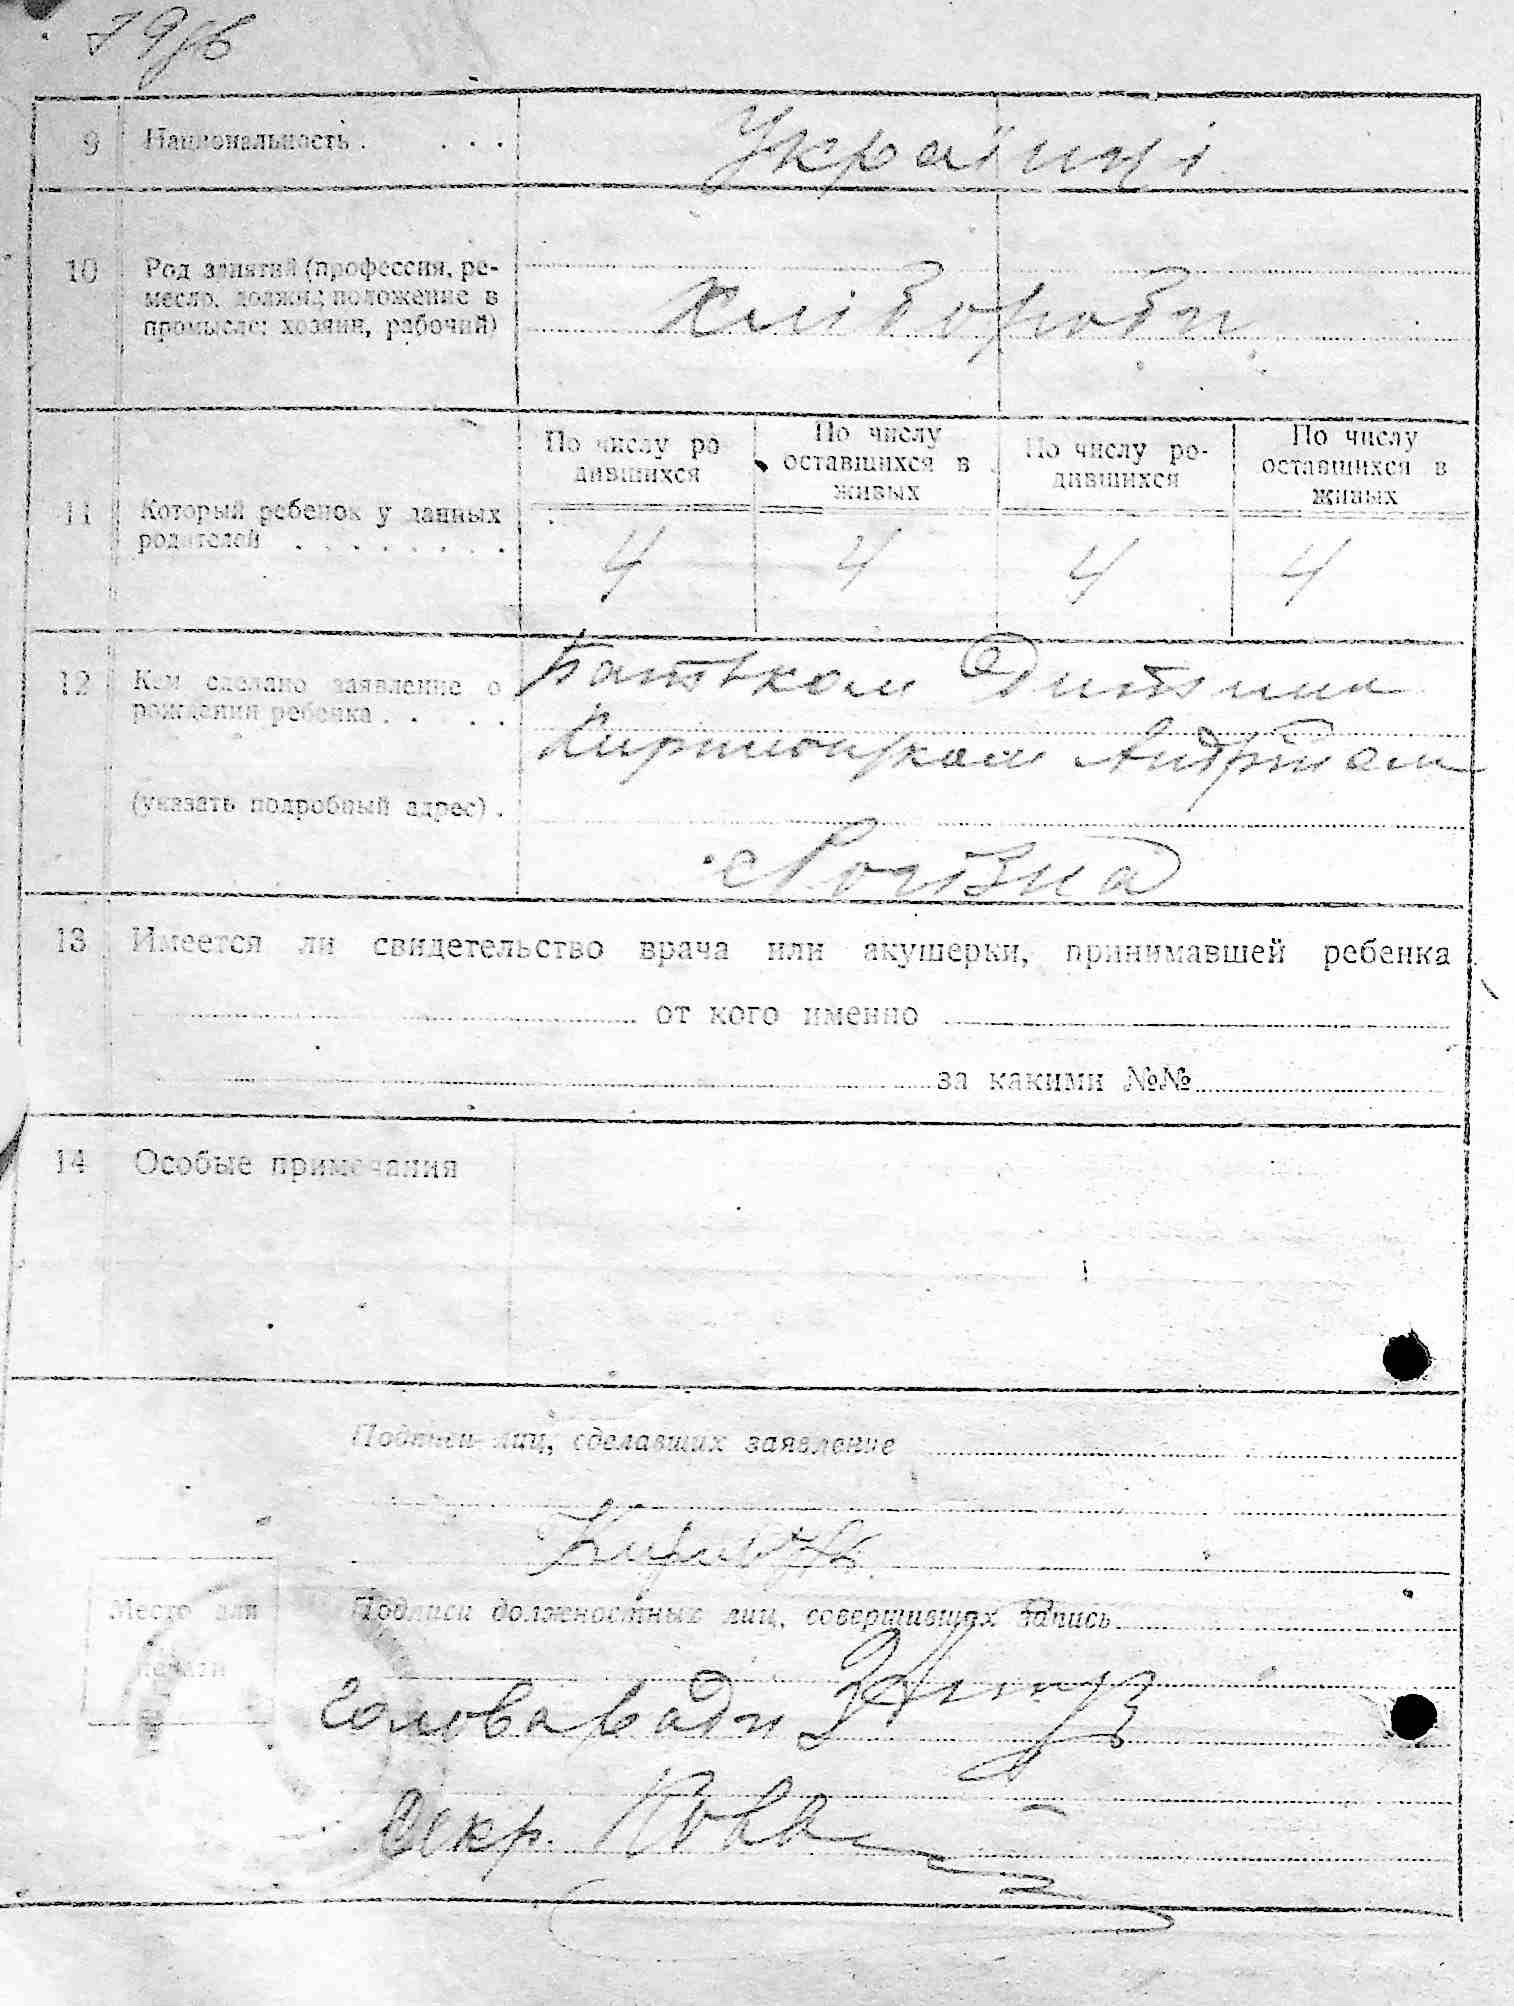 79зв
9 Национальность . . . . Українці
10 Род занятий (профессия, ре-
месло, должн.; положение в
промысле: хозяин, рабочий)
Хлібороби
11 Который ребенок у данных
родителей . . . . . . . .
По числу ро
дившихся
По числу
оставшихся в
живых
По числу ро-
дившихся
По числу
оставшихся в
живых
4 4 4 4
12 Кем сделано заявление о
рождении ребенка . . . .
(указать подробный адрес) .
Батьком Дитини
Андрієм
13 Имеется ли свидетельство врача или акушерки, принимавшей ребенка
от кого именно
за какими №№
14 Особые примечания
Подписи лиц, сделавших заявление
Место для
печати
Подписи должностных лиц, совершивших запись
Голова ради
Секр.